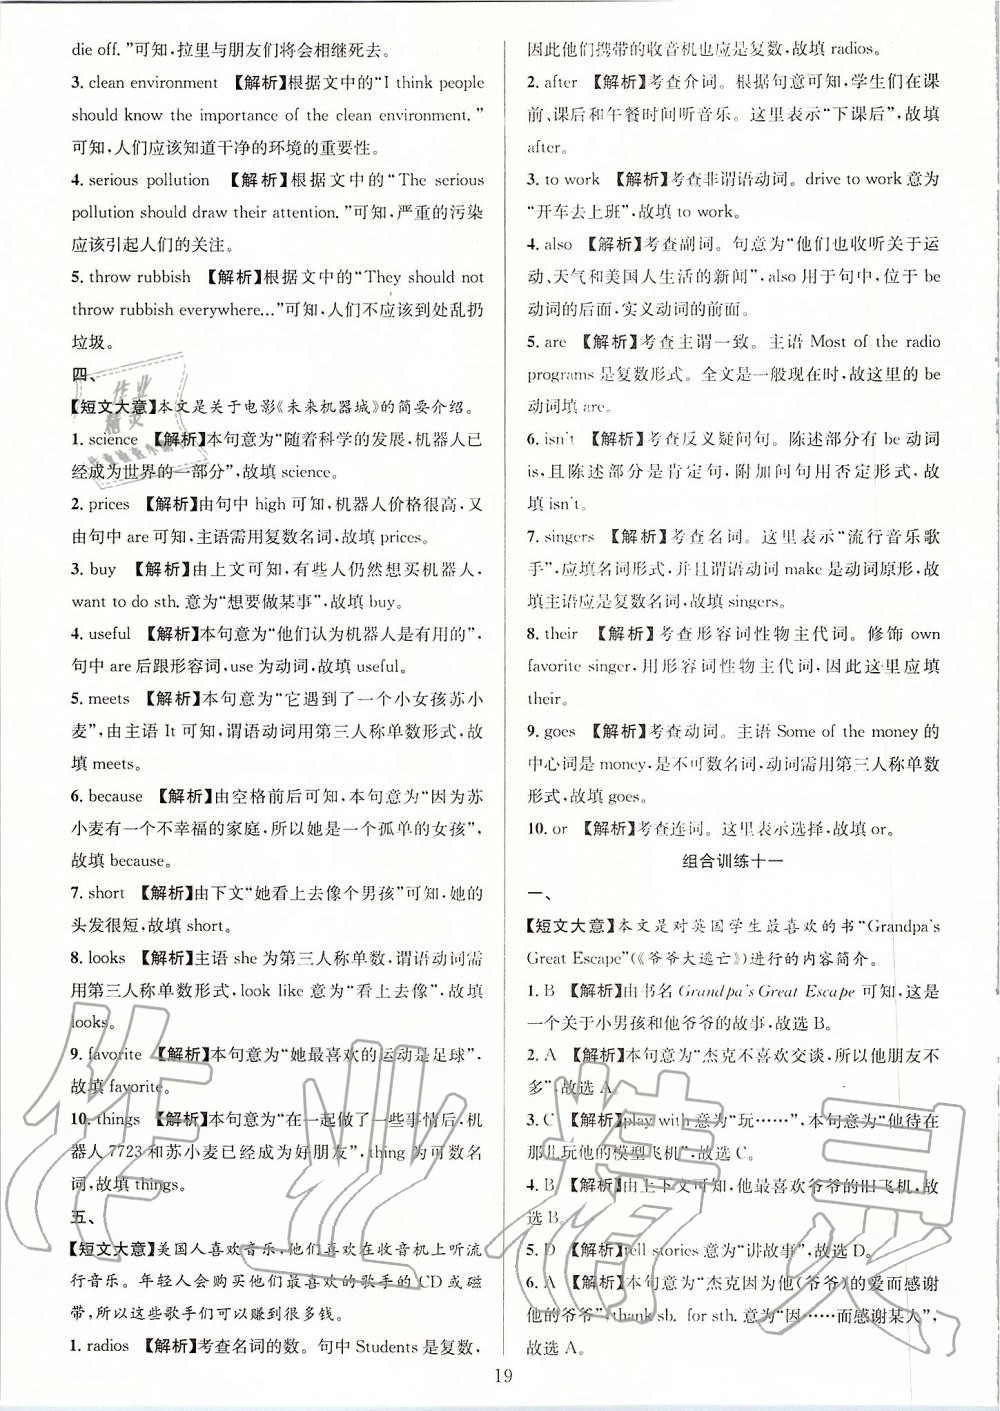 die off.”可知,拉里与朋友们将会相继死去。
3. clean environment 【解析】根据文中的“I think people
should know the importance of the clean environment.”
可知,人们应该知道干净的环境的重要性。
4. serious pollution 【解析】根据文中的“The serious
pollution should draw their attention.”可知,严重的污染
应该引起人们的关注。
5. throw rubbish 【解析】根据文中的“They should not
throw rubbish everywhere...”可知,人们不应该到处乱扔
垃圾。
四、
【短文大意】本文是关于电影《未来机器城》的简要介绍。
1. science 【解析】本句意为“随着科学的发展,机器人已
经成为世界的一部分”,故填 science。
2. prices 【解析】由句中 high 可知,机器人价格很高,又
由句中 are 可知,主语需用复数名词,故填 prices。
3. buy 【解析】由上文可知,有些人仍然想买机器人,
want to do sth. 意为“想要做某事”,故填 buy。
4. useful 【解析】本句意为“他们认为机器人是有用的”,
句中 are 后跟形容词,use 为动词,故填 useful。
5. meets 【解析】本句意为“它遇到了一个小女孩苏小
麦”,由主语 It 可知,谓语动词用第三人称单数形式,故
填 meets。
6. because 【解析】由空格前后可知,本句意为“因为苏
小麦有一个不幸福的家庭,所以她是一个孤单的女孩”,
故填 because。
7. short 【解析】由下文“她看上去像个男孩”可知,她的
头发很短,故填 short。
8. looks 【解析】主语 she 为第三人称单数,谓语动词需
用第三人称单数形式,look like 意为“看上去像”,故填
looks。
9. favorite 【解析】本句意为“她最喜欢的运动是足球”,
故填 favorite。
10. things 【解析】本句意为“在一起做了一些事情后,机
器人 7723 和苏小麦已经成为好朋友”,thing 为可数名
词,故填 things。
五、
【短文大意】美国人喜欢音乐,他们喜欢在收音机上听流
行音乐。年轻人会购买他们最喜欢的歌手的 CD 或磁
带,所以这些歌手们可以赚到很多钱。
1. radios 【解析】考查名词的数。句中 Students 是复数,
因此他们携带的收音机也应是复数,故填 radios。
2. after 【解析】考查介词。根据句意可知,学生们在课
前、课后和午餐时间听音乐。这里表示“下课后”,故填
after。
3. to work 【解析】考查非谓语动词。drive to work 意为
“开车去上班”,故填 to work。
4. also 【解析】考查副词。句意为“他们也收听关于运
动、天气和美国人生活的新闻”,also 用于句中,位于 be
动词的后面,实义动词的前面。
5. are 【解析】考查主谓一致。主语 Most of the radio
programs 是复数形式。全文是一般现在时,故这里的 be
动词填 are。
6. isn't 【解析】考查反义疑问句。陈述部分有 be 动词
is,且陈述部分是肯定句,附加问句用否定形式,故
填 isn't。
7. singers 【解析】考查名词。这里表示“流行音乐歌
手”,应填名词形式,并且谓语动词 make 是动词原形,故
填主语应是复数名词,故填 singers。
8. their 【解析】考查形容词性物主代词。修饰 own
favorite singer,用形容词性物主代词,因此这里应填
their。
9. goes 【解析】考查动词。主语 Some of the money 的
中心词是 money,是不可数名词,动词需用第三人称单数
形式,故填 goes。
10. or 【解析】考查连词。这里表示选择,故填 or。
组合训练十一
一、
【短文大意】本文是对英国学生最喜欢的书“Grandpa's
Great Escape”(《爷爷大逃亡》)进行的内容简介。
1. B 【解析】由书名 Grandpa's Great Escape 可知,这是
一个关于小男孩和他爷爷的故事,故选 B。
2. A 【解析】本句意为“杰克不喜欢交谈,所以他朋友不
多”,故选 A。
3. C 【解析】play with 意为“玩……”,本句意为“他待在
那儿玩他的模型飞机”,故选 C。
4. B 【解析】由上下文可知,他最喜欢爷爷的旧飞机,故
选 B。
5. D 【解析】tell stories 意为“讲故事”,故选 D。
6. A 【解析】本句意为“杰克因为他(爷爷)的爱而感谢
他的爷爷”,thank sb. for sth. 意为“因……而感谢某人”,
故选 A。
19
作业精灵